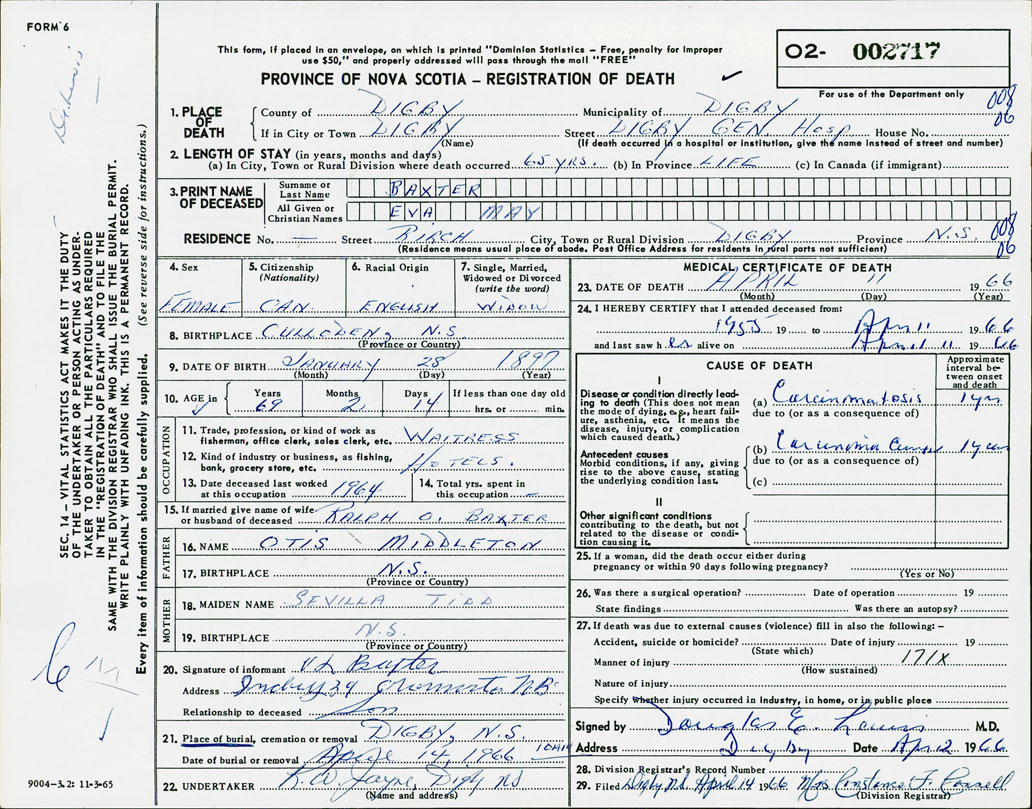 FORM 6
This form, if placed in an envelope, on which is printed "Dominion Statistics – Free, penalty for improper
use $50," and properly addressed will pass through the mail "FREE"
PROVINCE OF NOVA SCOTIA – REGISTRATION OF DEATH
02- 002717
For use of the Department only
008
06
1. PLACE OF DEATH
County of DIGBY Municipality of DIGBY
If in City or Town DIGBY Street DIGBY GEN. Hosp House No.
(Name) (If death occurred in a hospital or institution, give the name instead of street and number)
2. LENGTH OF STAY (in years, months and days)
(a) In City, Town or Rural Division where death occurred 65 YRS. (b) In Province LIFE (c) In Canada (if immigrant)
3. PRINT NAME OF DECEASED
Surname or Last Name BAXTER
All Given or Christian Names EVA MAY
RESIDENCE No. — Street BIRCH City, Town or Rural Division DIGBY Province N.S.
008
06
(Residence means usual place of abode. Post Office Address for residents in rural parts not sufficient)
4. Sex FEMALE
5. Citizenship (Nationality) CAN.
6. Racial Origin ENGLISH
7. Single, Married, Widowed or Divorced (write the word) WIDOW
8. BIRTHPLACE CULLODEN, N.S.
(Province or Country)
9. DATE OF BIRTH JANUARY 28 1897
(Month) (Day) (Year)
10. AGE in Years 69 Months 2 Days 14 If less than one day old hrs. or min.
OCCUPATION
11. Trade, profession, or kind of work as fisherman, office clerk, sales clerk, etc. WAITRESS
12. Kind of industry or business, as fishing, bank, grocery store, etc. HOTELS.
13. Date deceased last worked at this occupation 1964
14. Total yrs. spent in this occupation –
15. If married give name of wife or husband of deceased RALPH O. BAXTER
FATHER
16. NAME OTIS MIDDLETON
17. BIRTHPLACE N.S.
(Province or Country)
MOTHER
18. MAIDEN NAME SEVILLA TIDD
19. BIRTHPLACE N.S.
(Province or Country)
20. Signature of informant V L Baxter
Address N.B.
Relationship to deceased Son
21. Place of burial, cremation or removal DIGBY, N.S.
Date of burial or removal April 14, 1966
22. UNDERTAKER R.W. Jayne, Digby NS
(Name and address)
MEDICAL CERTIFICATE OF DEATH
23. DATE OF DEATH APRIL 11 1966
(Month) (Day) (Year)
24. I HEREBY CERTIFY that I attended deceased from:
1955 19 to Apr 11 1966
and last saw her alive on April 11 1966
CAUSE OF DEATH
Approximate interval between onset and death
I
Disease or condition directly leading to death (This does not mean the mode of dying, e.g., heart failure, asthenia, etc. It means the disease, injury, or complication which caused death.)
(a) Carcinomatosis 1 yr
due to (or as a consequence of)
Antecedent causes
Morbid conditions, if any, giving rise to the above cause, stating the underlying condition last.
(b) Carcinoma Cervix 1 year
due to (or as a consequence of)
(c)
II
Other significant conditions contributing to the death, but not related to the disease or condition causing it.
25. If a woman, did the death occur either during pregnancy or within 90 days following pregnancy?
(Yes or No)
26. Was there a surgical operation? Date of operation 19
State findings Was there an autopsy?
27. If death was due to external causes (violence) fill in also the following: –
Accident, suicide or homicide? Date of injury 19
(State which)
Manner of injury 171X
(How sustained)
Nature of injury
Specify whether injury occurred in industry, in home, or in public place
Signed by Douglas E. Lewis M.D.
Address Digby Date Apr 12 1966
28. Division Registrar's Record Number
29. Filed Digby N.S. April 14 1966 Mrs Constance F.
(Division Registrar)
SEC. 14 – VITAL STATISTICS ACT MAKES IT THE DUTY
OF THE UNDERTAKER OR PERSON ACTING AS UNDER-
TAKER TO OBTAIN ALL THE PARTICULARS REQUIRED
IN THE "REGISTRATION OF DEATH" AND TO FILE THE
SAME WITH THE DIVISION REGISTRAR WHO SHALL ISSUE THE BURIAL PERMIT.
WRITE PLAINLY WITH UNFADING INK. THIS IS A PERMANENT RECORD.
Every item of information should be carefully supplied. (See reverse side for instructions.)
9004-3.2: 11-3-65